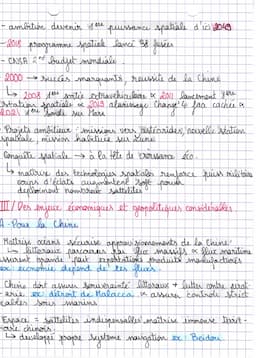 - ambitions devenir 1ère puissance spatiale d'ici 2049
- 2018 programme spatial lancé 38 fusées
- CNSA 2nd budget mondiale.
2000 → succès marquants, réussite de la Chine
↳ 2008 1ère sortie extravéhiculaire 2011 lancement 1ère
station spatiale 2019 alunissage Chang'4 face cachée
2021 1ère sonde sur Mars
- Projets ambitieux : missions vers astéroïdes, nouvelle station
spatiale, mission habitée sur Lune
Conquête spatiale → à la tête de croissance éco
↳ maîtrise des technologies spatiales renforce puiss militaire
coups d'éclats augmentent soft power
déploiement nombreux satellites
III / Des enjeux économiques et géopolitiques considérables.
A - Pour la Chine
Maîtrise océans sécurise approvisionnements de la Chine
↳ littoraux parcourus par flux massifs flux maritime
assurent grande part exportations produits manufacturés
éco dépend de ces flux.
Chine doit assurer souveraineté littoraux + lutter contre
ex détroit de Malacca assurer contrôle
Espace = satellites indispensables maîtrise immense
chinois.
↳ développe propre système navigation ex : Beidou